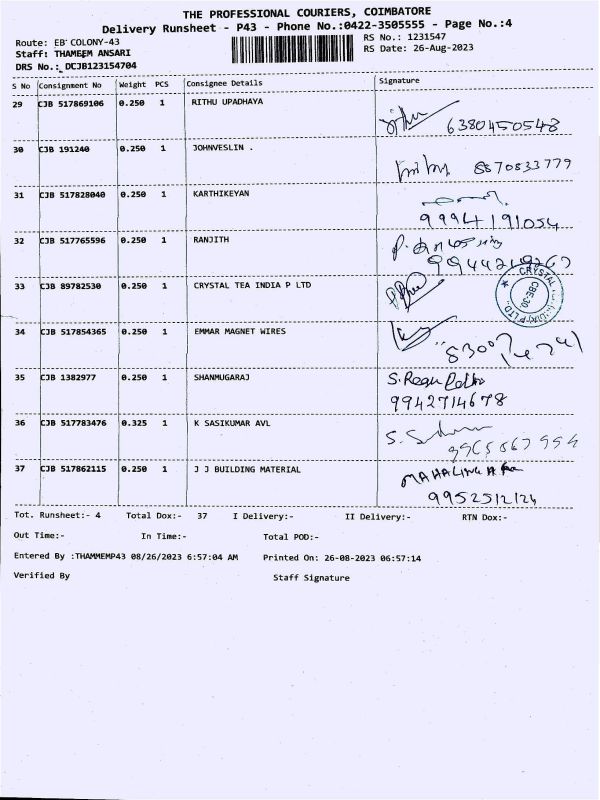 THE PROFESSIONAL COURIERS, COIMBATORE
Delivery Runsheet - P43 - Phone No.:0422-3505555 - Page No.:4
Route: EB COLONY-43 RS No.: 1231547
Staff: THAMEEM ANSARI RS Date: 26-Aug-2023
DRS No.: DCJB123154704
S No Consignment No Weight PCS Consignee Details Signature
29 CJB 517869106 0.250 1 RITHU UPADHAYA
6380450548
30 CJB 191240 0.250 1 JOHNVESLIN .
8870833779
31 CJB 517828040 0.250 1 KARTHIKEYAN
9994191054
32 CJB 517765596 0.250 1 RANJITH
33 CJB 89782530 0.250 1 CRYSTAL TEA INDIA P LTD
CRYSTAL
CBE-30.
34 CJB 517854365 0.250 1 EMMAR MAGNET WIRES
35 CJB 1382977 0.250 1 SHANMUGARAJ
9942714678
36 CJB 517783476 0.325 1 K SASIKUMAR AVL
37 CJB 517862115 0.250 1 J J BUILDING MATERIAL
9952512124
Tot. Runsheet:- 4 Total Dox:- 37 I Delivery:- II Delivery:- RTN Dox:-
Out Time:- In Time:- Total POD:-
Entered By :THAMMEMP43 08/26/2023 6:57:04 AM Printed On: 26-08-2023 06:57:14
Verified By Staff Signature